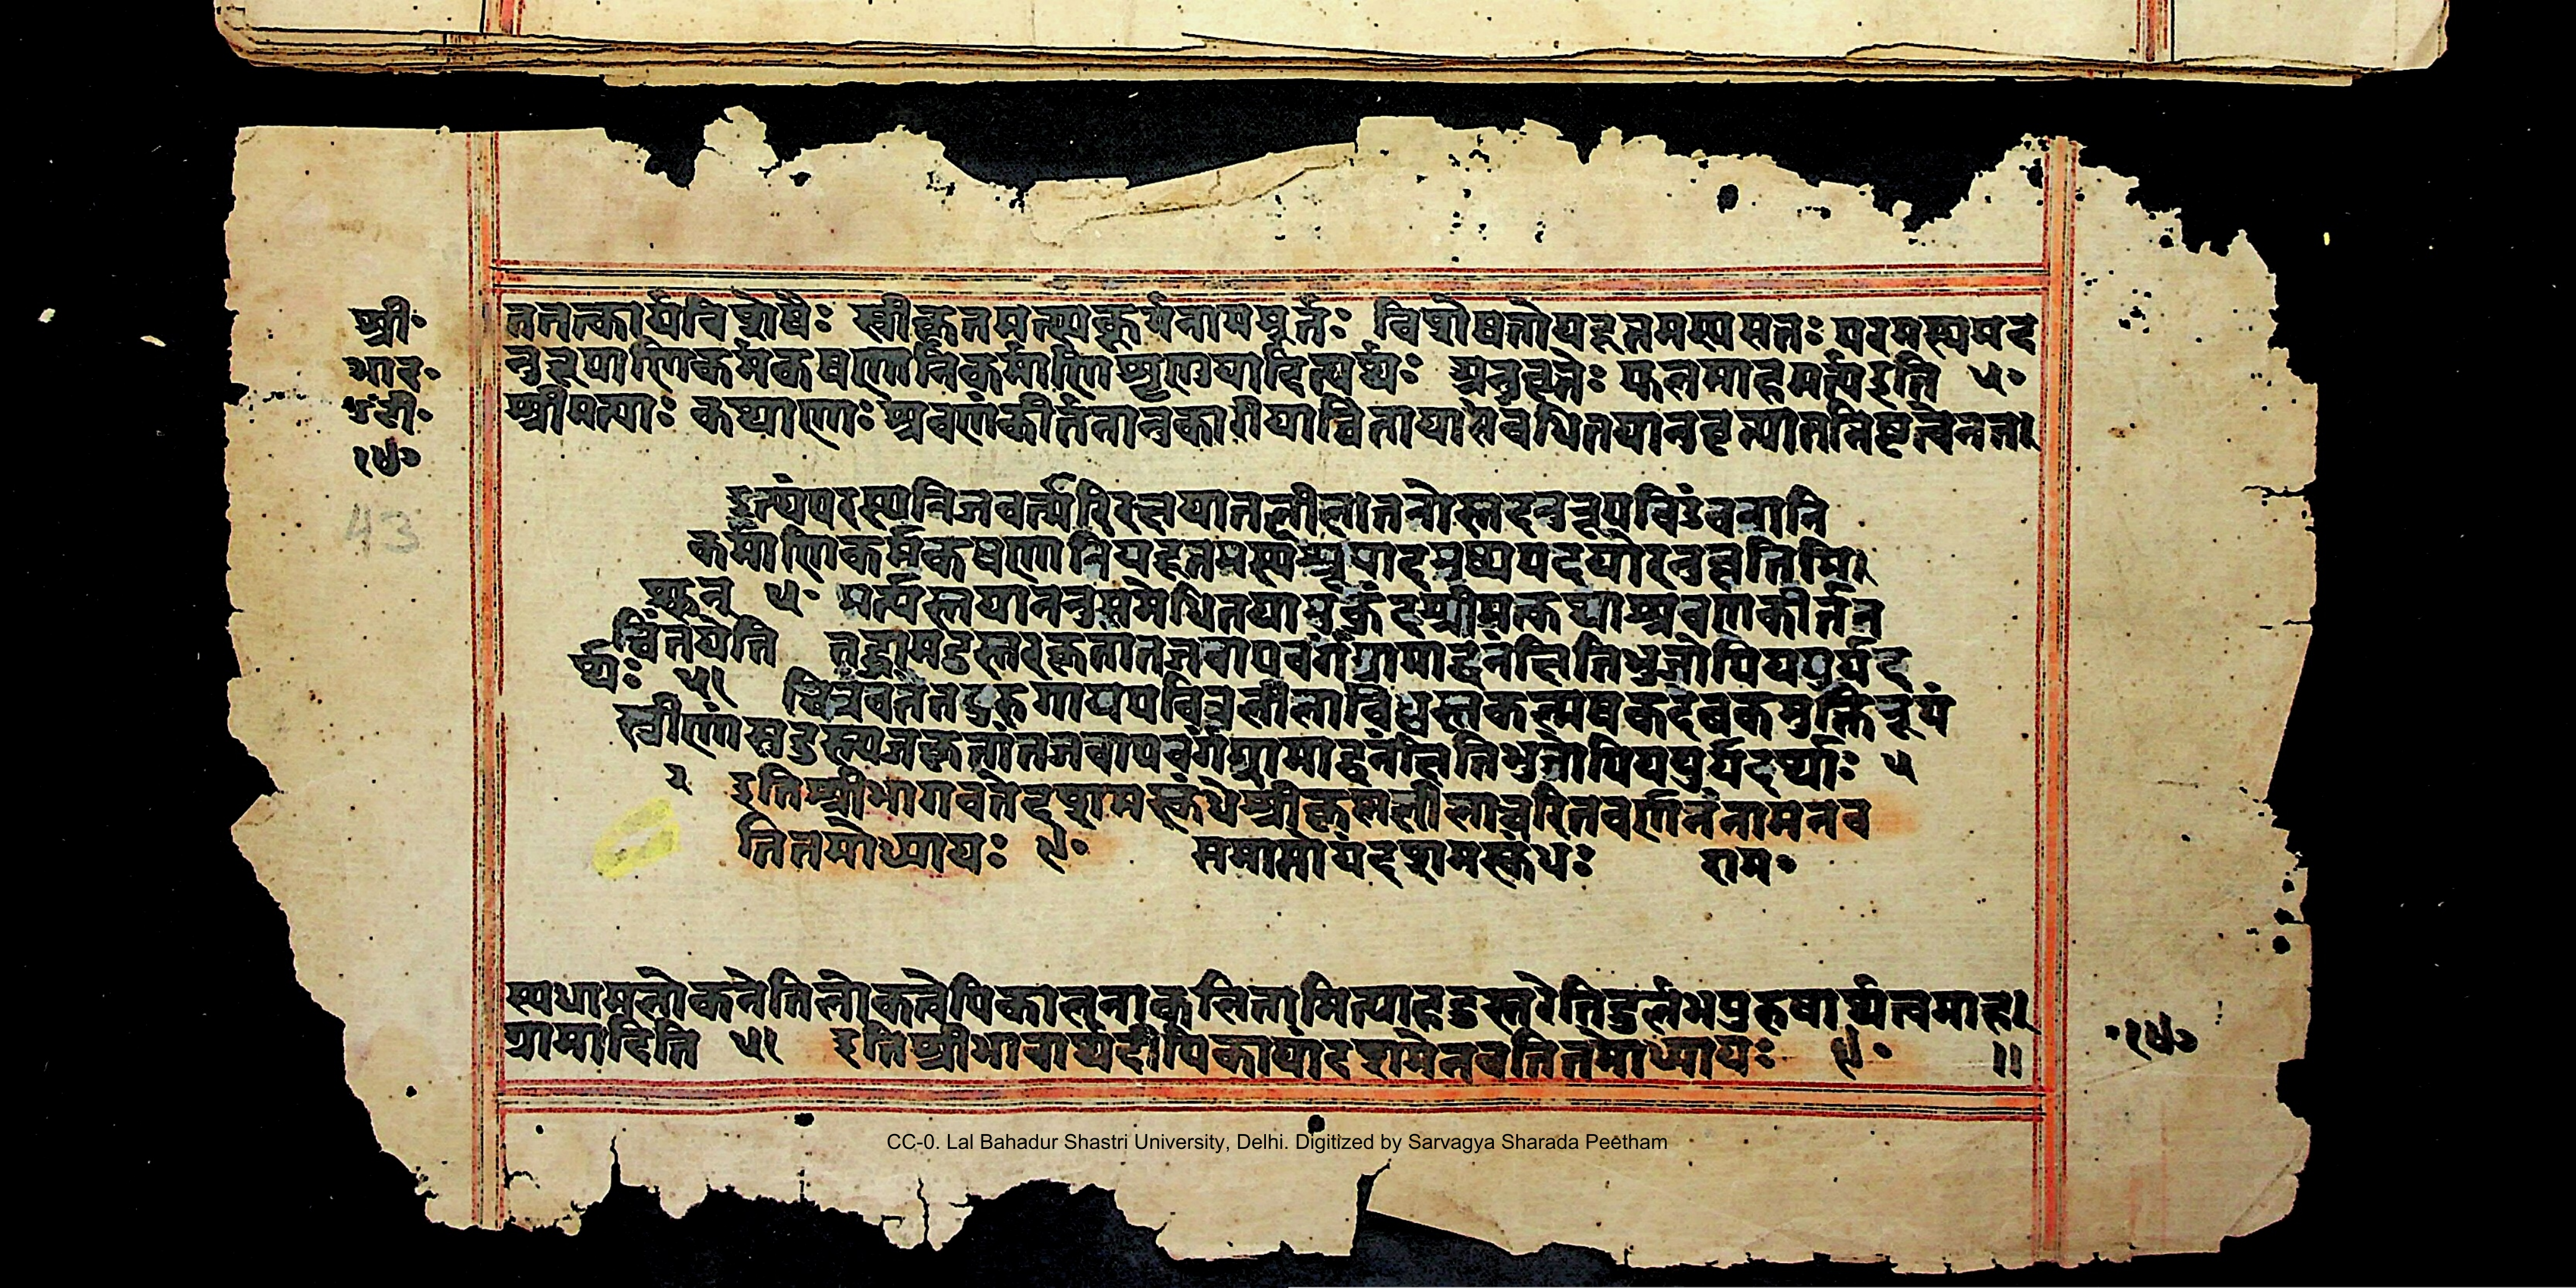 श्री॰
भाद॰
टी॰
१५०
43
तत्तत्कार्यविशेषैः स्वीकृतमत्स्यकूर्मनामघूर्तः विशेषतोयदूत्तमस्यसतः परमस्यमद
नुरूपाणिकर्मकषणानिकर्माणिशृणुयादित्यर्थः अनुवृत्तेः फलमाहमर्त्यइति ५॰
श्रीमत्याः कथायाः श्रवणकीर्तनानुकारीयाचिंतायासंवर्धितयानुवृत्त्यातन्निष्टत्वेनता
इत्थंपरस्यनिजवर्त्मरिरक्षयात्तलीलातनोस्तदनुरूपविडंबनानि
कर्माणिकर्मकषणानियदूत्तमस्यश्रूयादमुष्यपदयोरनुवृत्तिमि
छन् ५॰ मर्त्यस्तयाननुसमेधितयामुकुंदश्रीमत्कथाश्रवणकीर्तन
चिंतयेति तद्धामदुस्तरकृतांतजवापवर्गंग्रामाद्वनंक्षितिभुजोपिययुर्यद
र्थाः ५१ चित्रंवतैतदुरुगायपवित्रलीलाविध्वस्तकल्मषकदंबकमुक्तिरूपं
स्त्रीणांसदुस्त्यजकृतांतजवापवर्गंग्रामाद्वनंक्षितिभुजोपिययुर्यदर्थाः ५
२ इतिश्रीभागवतेदशमस्कंधेश्रीकृष्णलीलाचरितवर्णनंनामनव
तितमोध्यायः ९॰ समाप्तोयंदशमस्कंधः राम॰
स्यधामलोकनेतिलोकत्वेपिकालनाकलितामित्याहदुस्तरेतिदुर्लभपुरुषार्थत्वमाह
ग्रामादिति ५१ इतिश्रीभावार्थदीपिकायांदशमेनवतितमोध्यायः ९॰ ॥
१५०
CC-0. Lal Bahadur Shastri University, Delhi. Digitized by Sarvagya Sharada Peetham